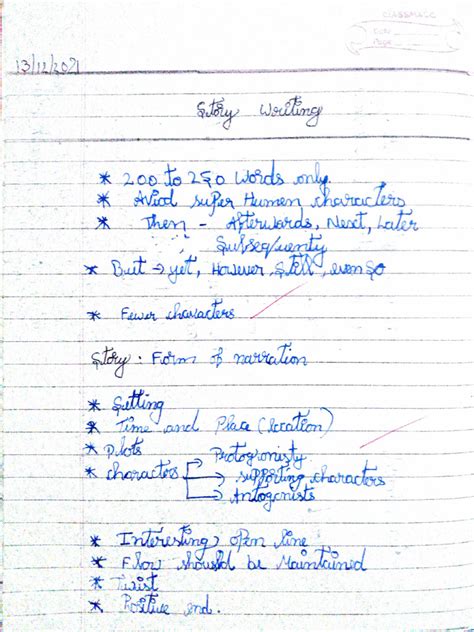 CLASSMATE
Date
Page
13/12/2021
Story Writing
* 200 to 250 Words only.
* Aviod super Human characters
* Then - Afterwards, Next, Later
Subsequenty
* But → yet, However, Still, even so
* Fewer characters
Story : Form of narration
* Setting
* Time and Place (location)
* Plots
Protogronisty
* charactors → supporting characters
→ Antogonists
* Interesting open line
* Flow should be Maintained
* Twist
* Positive end.